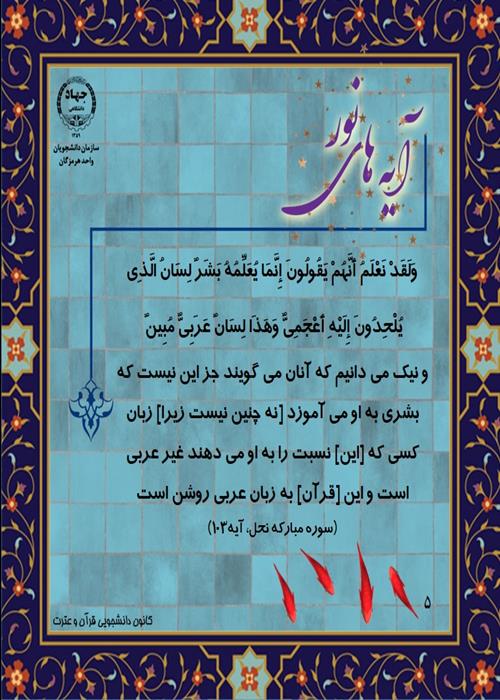 آیه های نور
جهاد
دانشگاهی
۱۳۵۹
سازمان دانشجویان
واحد هرمزگان
وَلَقَدْ نَعْلَمُ أَنَّهُمْ يَقُولُونَ إِنَّمَا يُعَلِّمُهُ بَشَرٌ لِسَانُ الَّذِی
يُلْحِدُونَ إِلَيْهِ أَعْجَمِیٌّ وَهَذَا لِسَانٌ عَرَبِیٌّ مُبِينٌ
و نیک می دانیم که آنان می گویند جز این نیست که
بشری به او می آموزد [نه چنین نیست زیرا] زبان
کسی که [این] نسبت را به او می دهند غیر عربی
است و این [قرآن] به زبان عربی روشن است
(سوره مبارکه نحل، آیه۱۰۳)
۵
کانون دانشجویی قرآن و عترت